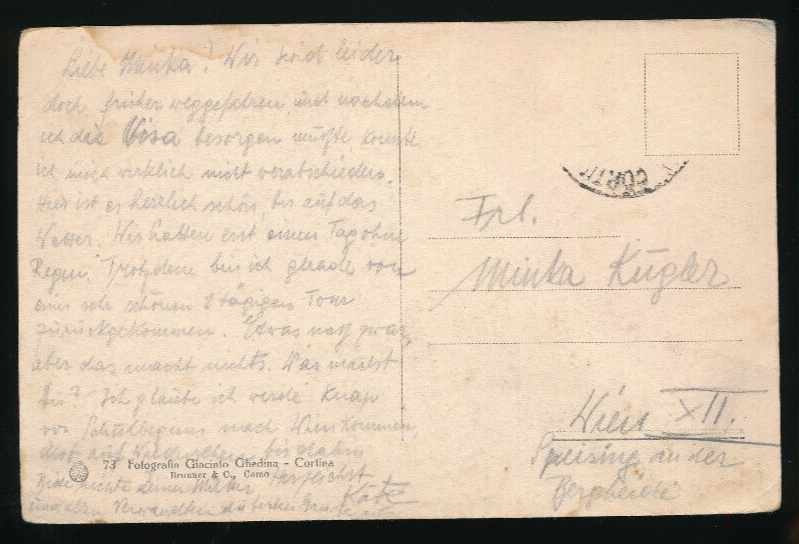 Liebe Minka! Wir sind leider
doch früher weggefahren und nachdem
ich die Visa besorgen mußte konnte
ich mich wirklich nicht verabschieden.
Hier ist es herrlich schön, bis auf das
Wetter. Wir hatten erst einen Tag ohne
Regen. Trotzdem bin ich gerade von
einer sehr schönen 2 tägigen Tour
zurückgekommen. Etwas naß zwar,
aber das macht nichts. Was machst
Du? Ich glaube ich werde knap
vor Schulbeginn nach Wien kommen,
also auf Wiedersehen bis dahin
73 Fotografia Giacinto Ghedina - Cortina
Brunner & C., Como
Bitte richte deiner Mutter
und allen Verwandten
Käte
CORTI
Frl.
Minka Kugler
Wien XII.
Speising an der
Bergheide